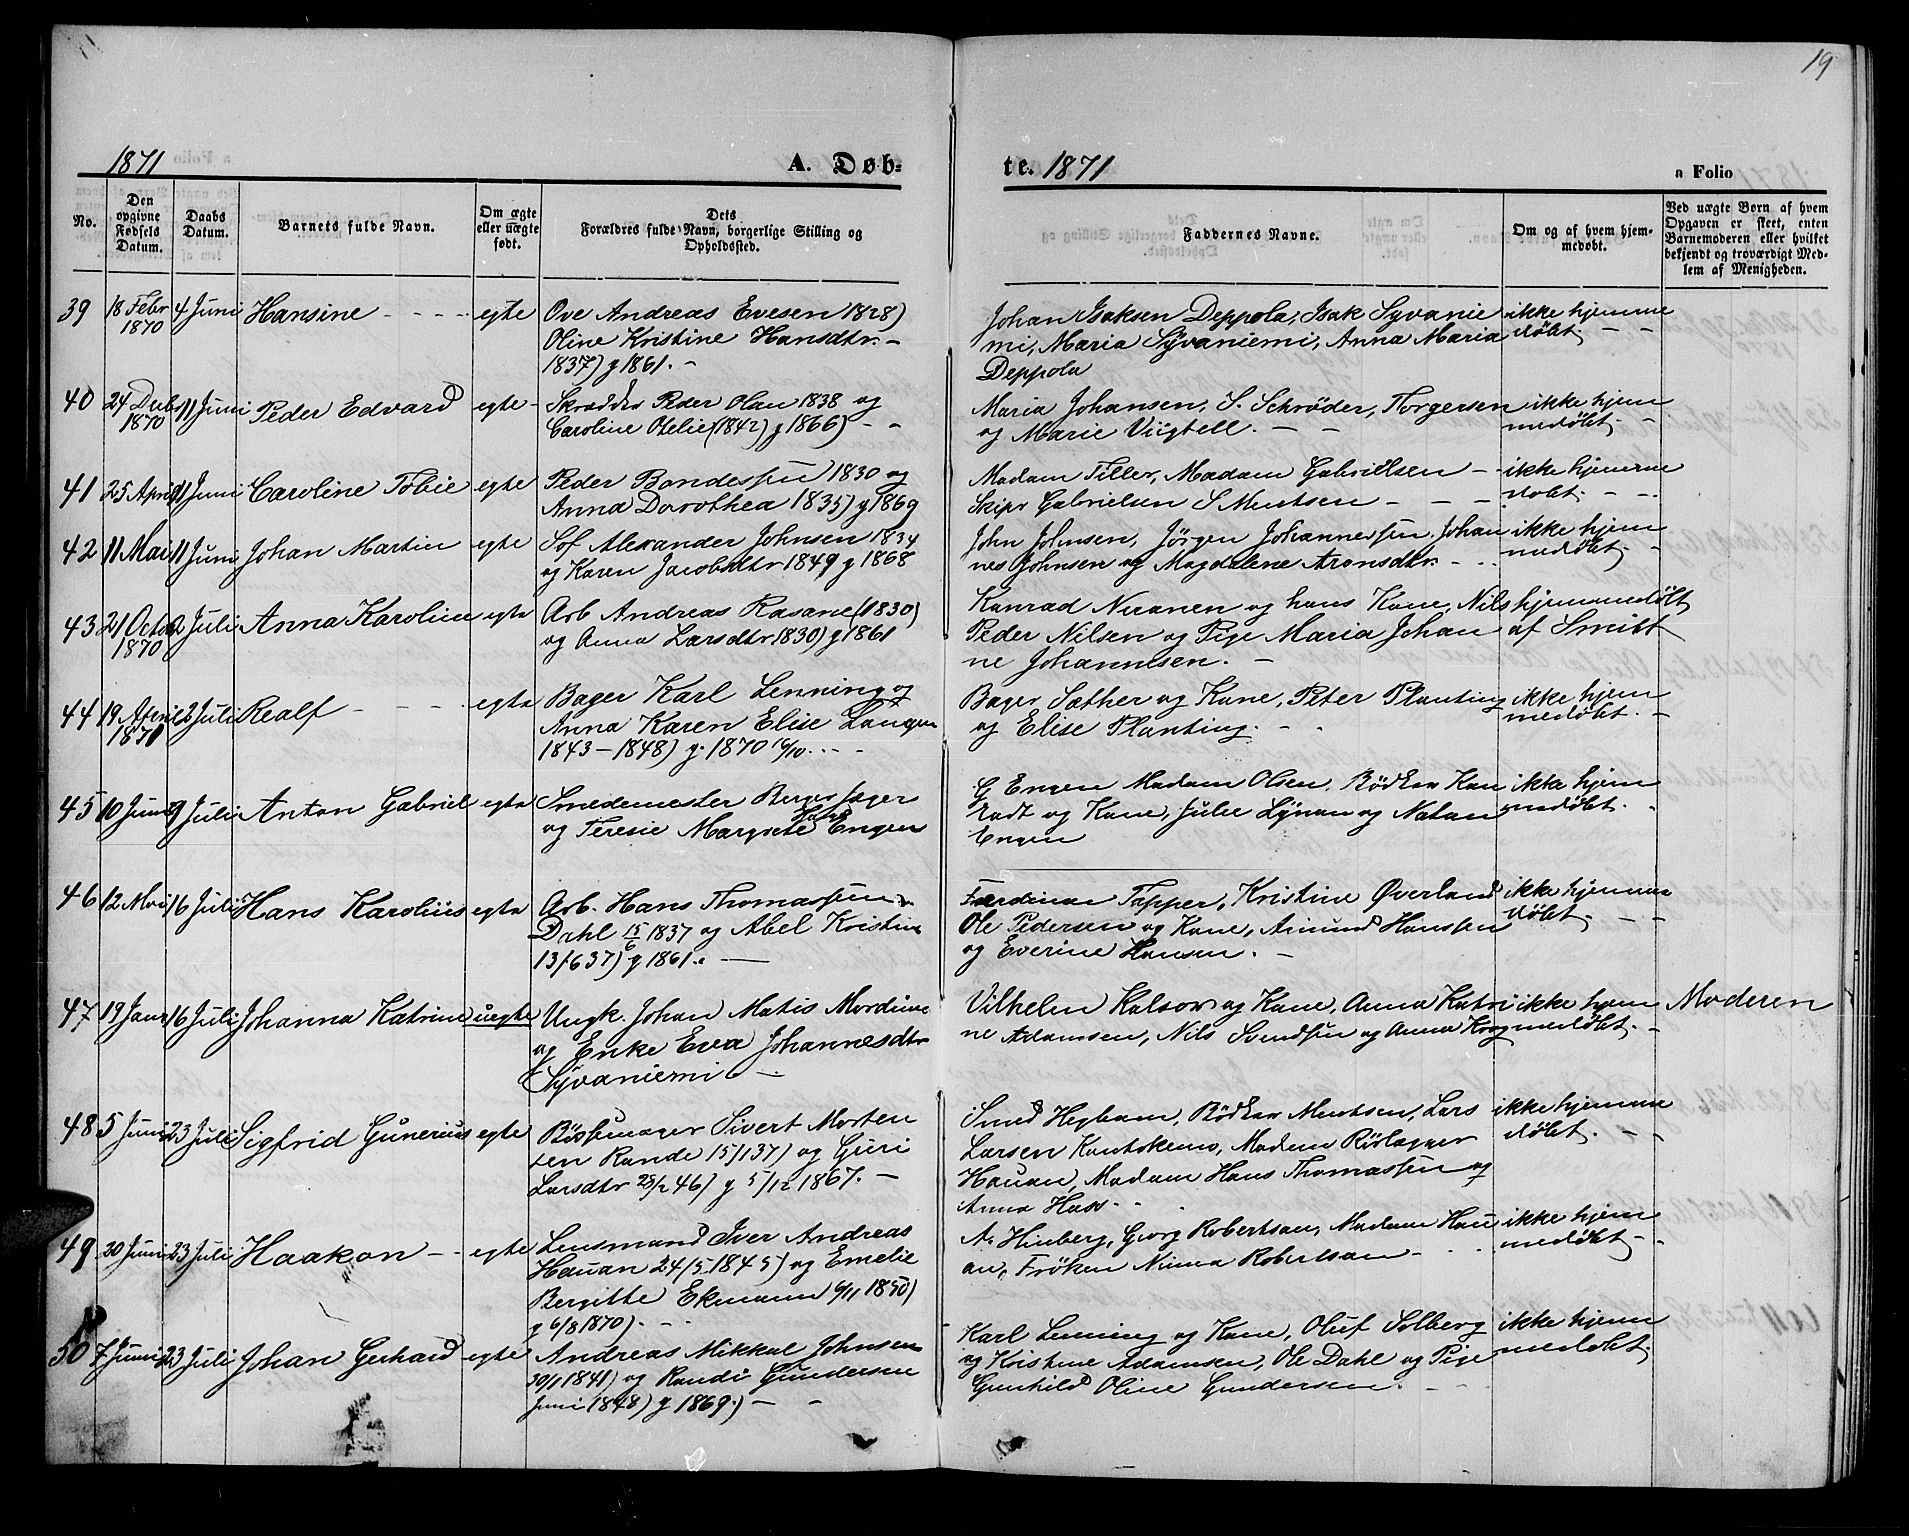 19
1871 A. Døb-
te. 1871 a Folio
No. Den opgivne Fødsels Datum. Daabs Datum. Barnets fulde Navn. Om ægte eller uægte født. Dets Forældres fulde Navn, borgerlige Stilling og Opholdssted. Faddernes Navne. Om og af hvem hjemmedøbt. Ved uægte Børn af hvem Opgaven er skeet, enten Barnemoderen eller hvilket bekjendt og troværdigt Medlem af Menigheden.
39 18 Febr 4 Juni Hansine - - - - egte Ove Andreas Evesen 1828) Johan Isaksen Deppola, Isak Syvanie ikke hjemme
1870 Oline Kristine Hansdtr. - mi, Maria Syvaniemi, Anna Maria døbt. - -
1837) g 1861. - Deppola
40 24 Decbr 11 Juni Peder Edvard egte - Skrædder Peder Olau 1838 og Maria Johansen, S. Schrøder, Torgersen ikke hjem
1870 Caroline Otelie (1842) g 1866) - - og Marie Viigtell. - - medøbt. -
41 25 April 11 Juni Caroline Tobie egte Peder Bondessen 1830 og Madam Tiller, Madam Gabrielsen - ikke hjemme
Anna Dorothea 1835) g 1869 Skipr Gabrielsen S Knutsen - - - døbt. - -
42 11 Mai 11 Juni Johan Martin egte Sof Alexander Johnsen 1834 John Johnsen, Jørgen Johannessen, Johan ikke hjem
og Karen Jacobsdtr 1849 g 1868 nes Johnsen og Magdalene Aronsdtr. - - medøbt. -
43 21 Octo 2 Juli Anna Karoline egte Arb Andreas Rasane (1830) Konrad Niranen og hans Kone, Nils hjemmedøbt
1870 og Anna Larsdtr 1830) g 1861 Peder Nilsen og Pige Maria Johan af Smitt
ne Johannesen. -
44 19 April 2 Juli Realf - - - egte Bager Karl Lenning og Bager Sæther og Kone, Peter Planting ikke hjem
1871 Anna Karen Elise Langen og Elise Planting. - - medøbt. -
1843 - 1848) g. 1870 16/10. - -
45 10 Juni 9 Juli Anton Gabriel egte Smedemester Berger Jager G Engen Madam Olsen, Bødker Kon ikke hjem
og Teresie Margrete Engen radt og Kone, Julie Lynan og Natan medøbt. -
Engen
46 12 Mai 16 Juli Hans Karolius egte Arb. Hans Thomassen Ferdinan Tapper, Kristine Øverland ikke hjemme
Dahl 15/6 1837 og Abel Kristine Ole Pedersen og Kone, Amund Hanssen døbt. - -
13/6 37) g 1861. - og Everine Hansen. -
47 19 Janr 16 Juli Johanna Katrine uegte Ungk. Johan Matis Mordime Vilhelm Kalsow og Kone, Anna Katri ikke hjem Moderen
og Enke Eva Johannesdtr ne Adamsen, Nils Svendsen og Anna Krog medøbt. -
Syvaniemi -
48 5 Juni 23 Juli Sigfrid Gunerius egte Bøssemager Sivert Morten Smed Hegbam, Bødker Knutsen, Lars ikke hjemme
sen Rande 15/1 37) og Guri Larsen Kautokeino, Madam døbt. - -
Larsdtr 28/2 46) g 5/12 1867. - Hauan, Madam Hans Thomassen og
Anna Hass. -
49 20 Juni 23 Juli Haakon - - egte Lensmand Iver Andreas A. Hinberg, Georg Robertsen, Madam Hau ikke hjem
Hauan 24/5 1845) og Emelie an, Frøken Ninna Robertson - - medøbt -
Bergitte Ekmann 6/11 1850)
g 6/8 1870). - -
50 7 Juni 23 Juli Johan Gerhard egte Andreas Mikkal Johnsen Karl Lenning og Kone, Oluf Solberg ikke hjem
30/1 1841) og Randi Gundersen og Kristine Adamsen, Ole Dahl og Pige medøbt.
Juni 1848) g 1869.) - - Gunhild Oline Gundersen. -